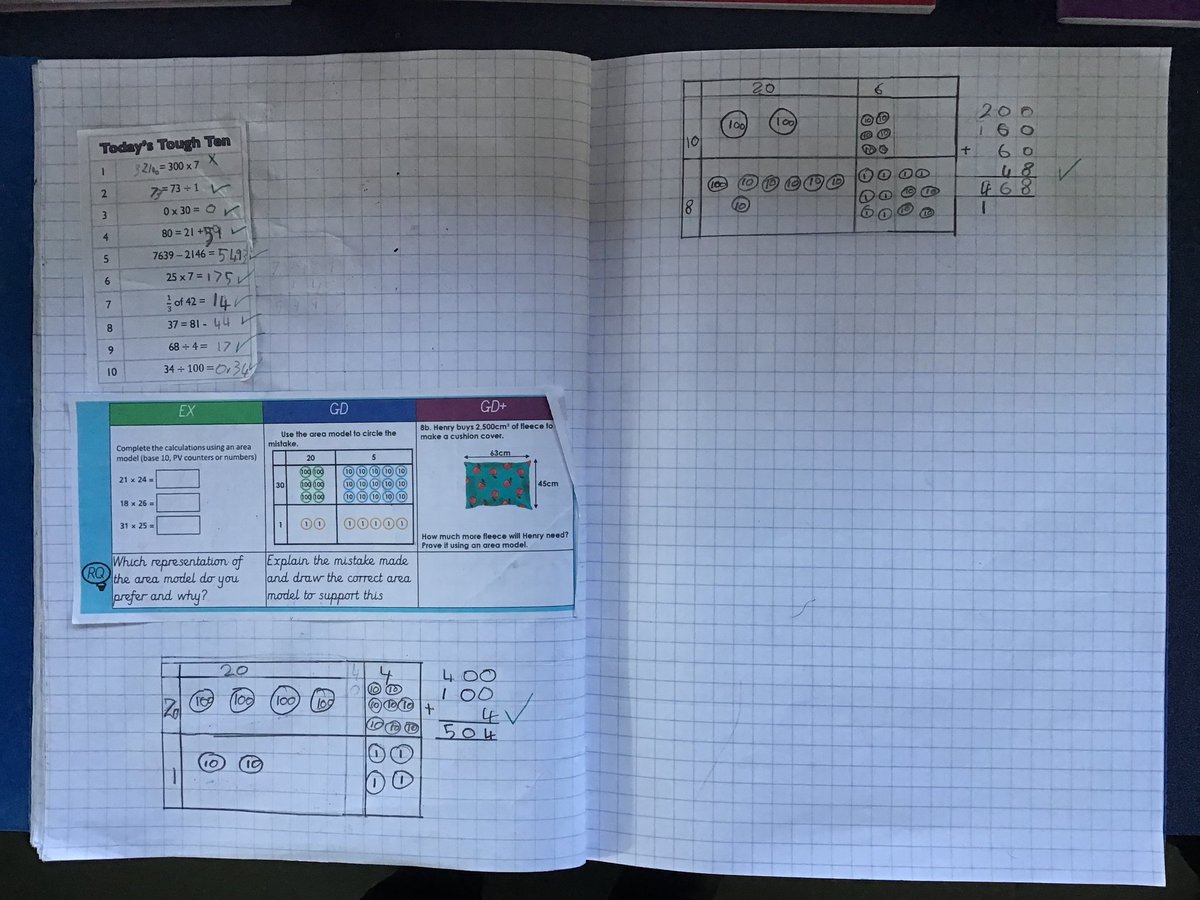 Today's Tough Ten
1 = 300 x 7 X
2 73 = 73 ÷ 1 ✓
3 0 x 30 = 0 ✓
4 80 = 21 + 59 ✓
5 7639 – 2146 = 5493 ✓
6 25 x 7 = 175 ✓
7 1/3 of 42 = 14 ✓
8 37 = 81 - 44 ✓
9 68 ÷ 4 = 17 ✓
10 34 ÷ 100 = 0.34 ✓
EX
Complete the calculations using an area
model (base 10, PV counters or numbers)
21 x 24 =
18 x 26 =
31 x 25 =
RQ
Which representation of
the area model do you
prefer and why?
GD
Use the area model to circle the
mistake.
20 5
30
100 100 10 10 10 10 10
100 100 10 10 10 10 10
100 100 10 10 10 10 10
1 1 1 1 1 1 1 1
Explain the mistake made
and draw the correct area
model to support this
GD+
8b. Henry buys 2,500cm² of fleece to
make a cushion cover.
63cm
45cm
How much more fleece will Henry need?
Prove it using an area model.
20 4
20 100 100 100 100
10 10
10 10 10
10 10 10
1 10 10
1 1
1 1
400
100
+ 4
504 ✓
20 6
10 100 100
10 10
10 10
10 10
8 100 10 10 10 10 10
10
1 1 1 1
1 1 10 10
1 1 10 10
200
160
+ 60
48
468 ✓
1